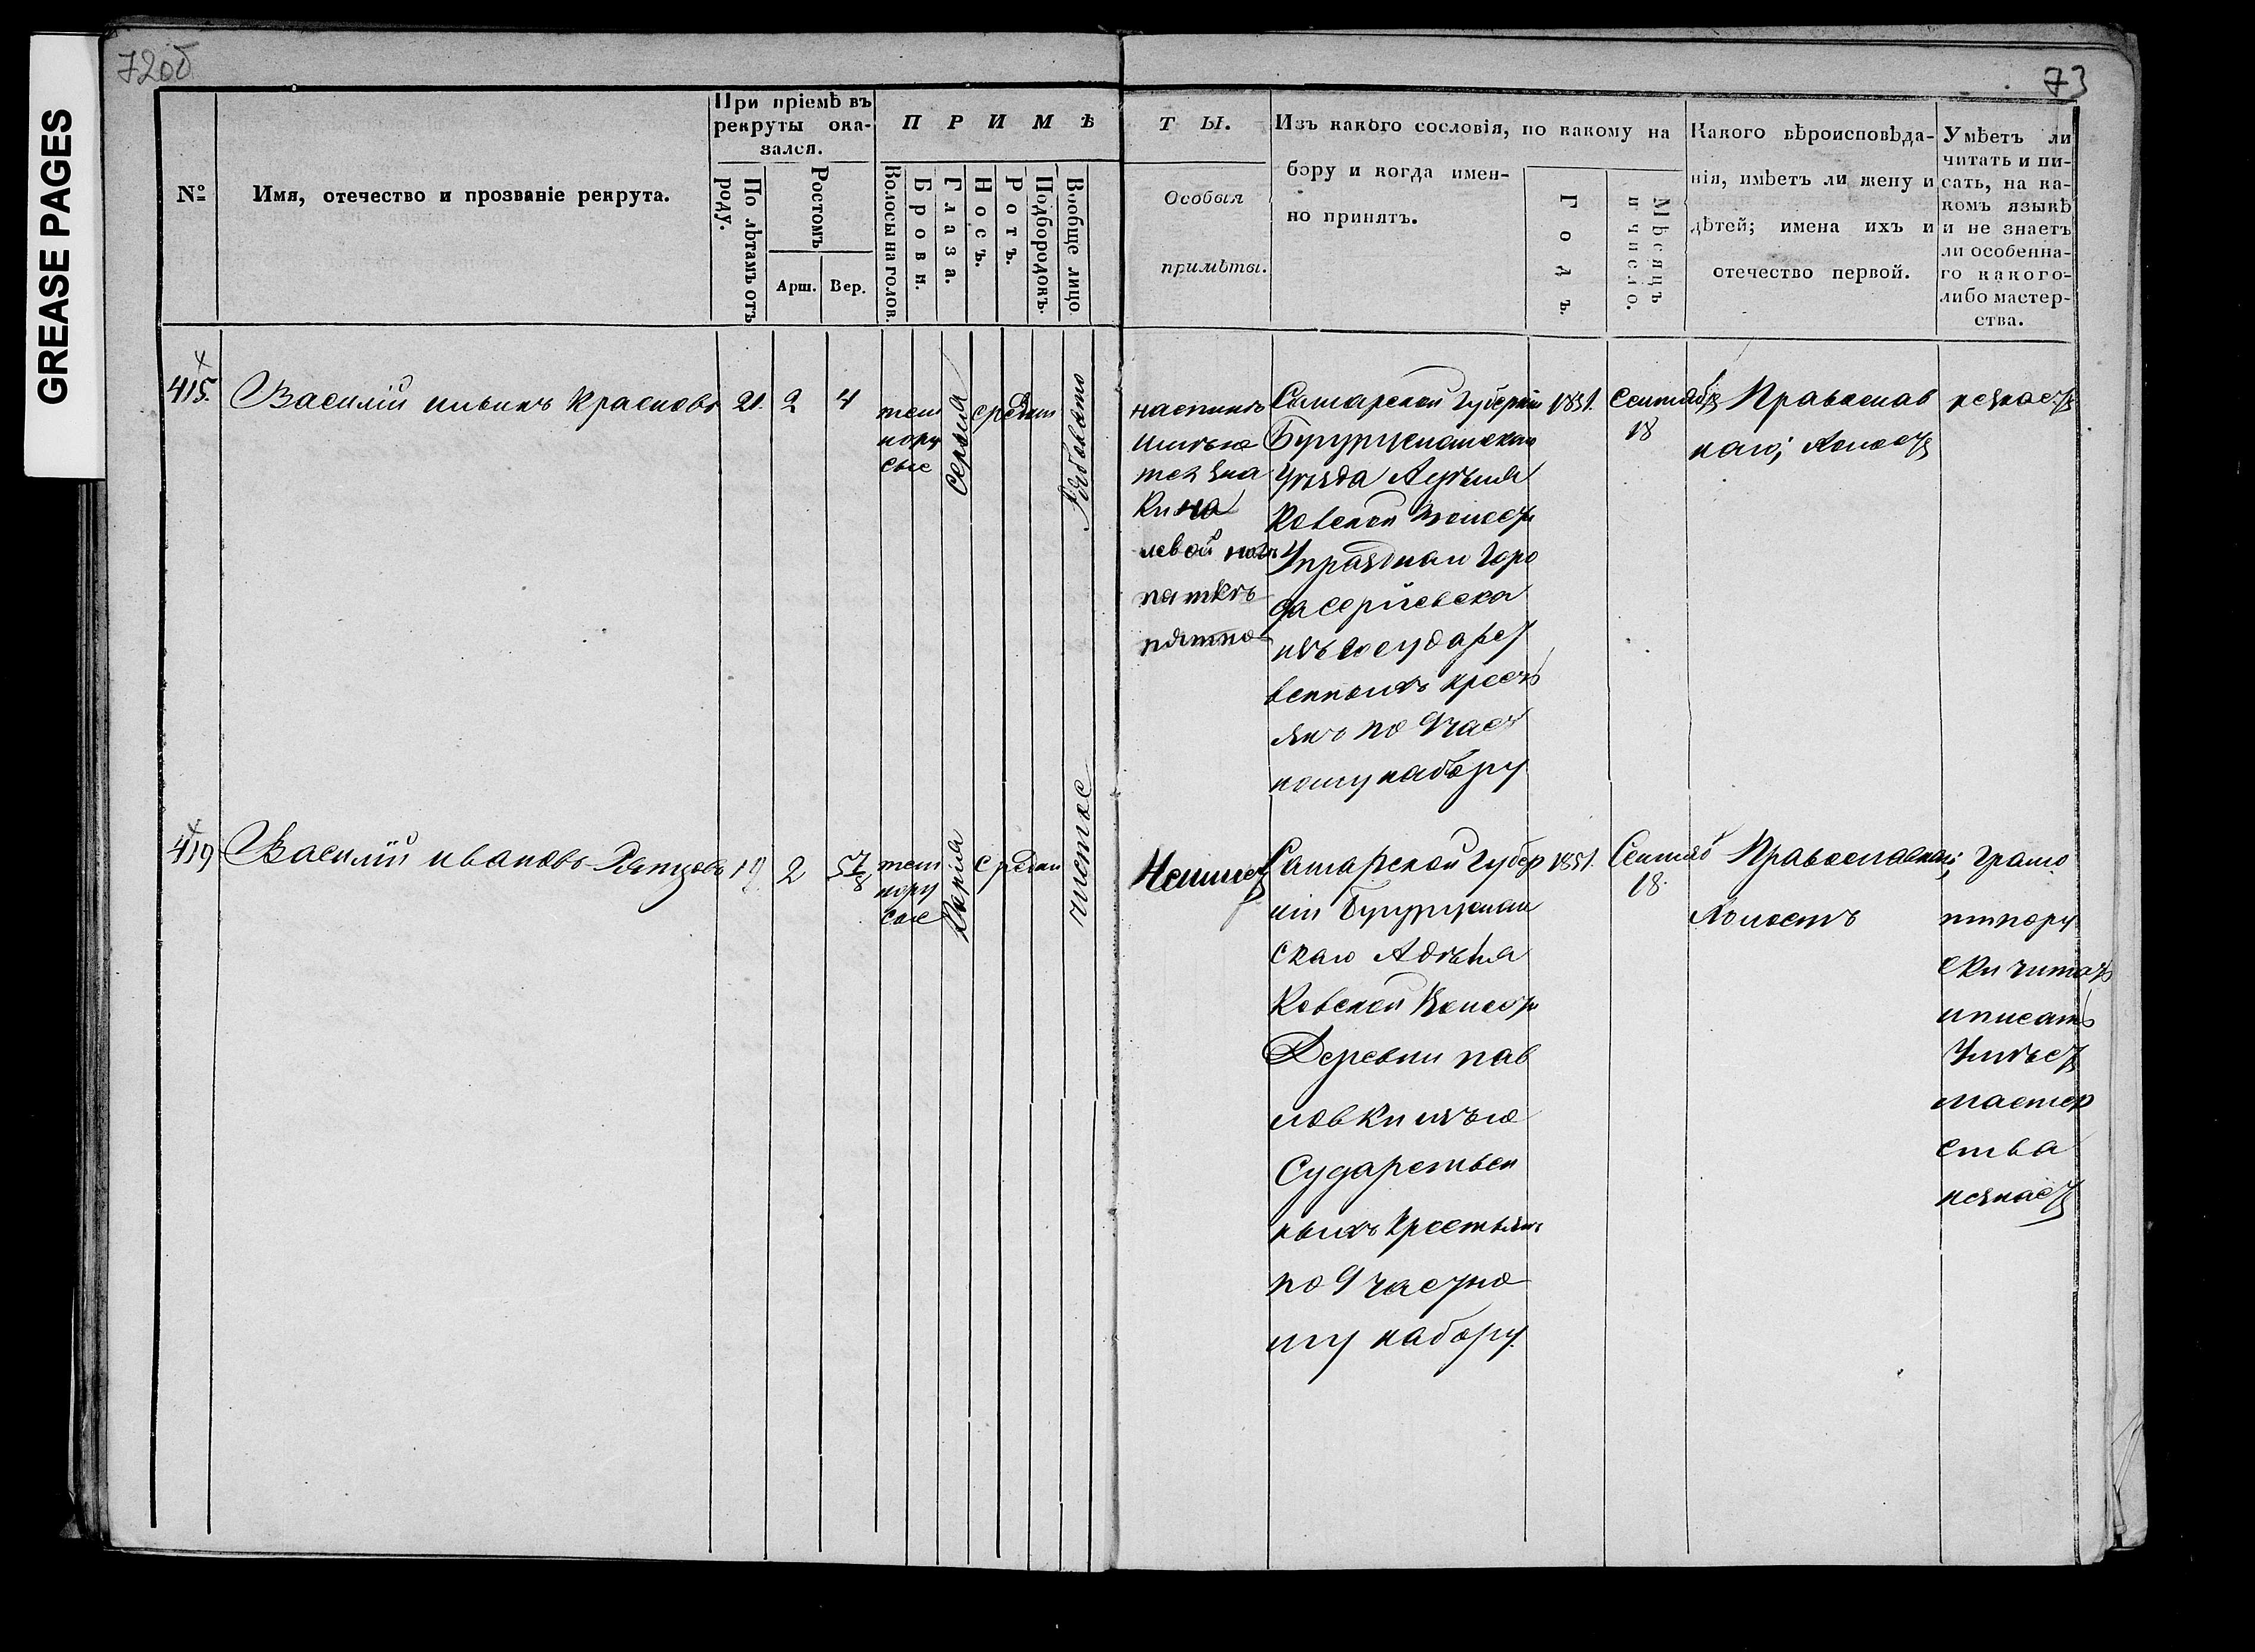 GREASE PAGES
72об
73
№
Имя, отечество и прозваніе рекрута.
При пріемѣ въ
рекруты ока-
зался.
По лѣтамъ отъ
роду.
Ростомъ
Арш.
Вер.
ПРИМѢ
Волосы на голов.
Брови.
Глаза.
Носъ.
Ротъ.
Подбородокъ.
Вообще лицо
ТЫ.
Особыя
примѣты.
Изъ какого сословія, по какому на
бору и когда имен-
но принятъ.
Годъ.
Мѣсяцъ
и число.
Какого вѣроисповѣда-
нія, имѣетъ ли жену и
дѣтей; имена ихъ и
отечество первой.
Умѣетъ ли
читать и пи-
сать, на ка-
комъ языкѣ
и не знаетъ
ли особенна-
го какого-
либо мастер-
ства.
415.
Василій ильинъ Красновъ
21.
2
4
тем
нору
сые
Серыя
средни
Рябовато
Самарской Губерніи
Бугурусланскаго
Уѣзда
ковской Волост
Упразднаго Горо
да Сергіевска
изъ Государст
венныхъ крест
янъ по 9 част
ному набору
левой
лопаткѣ
пятно
1851.
Сентябр
18
Православ
наго; холост
незнает
419
Василій ивановъ
19
2
5 7/8
тем
нору
сые
Карія
средни
чистое
Неимеет
Самарской Губер
ніи Бугуруслан
скаго
ковской Волост
Деревни пав
ловки изъ го
сударствен
ныхъ крестьянъ
по 9 частно
му набору.
1851.
Сентяб
18.
Православнаго;
холостъ
Грамо
тпору
ски читат
иписать
Умѣет
мастер
ства
незнает